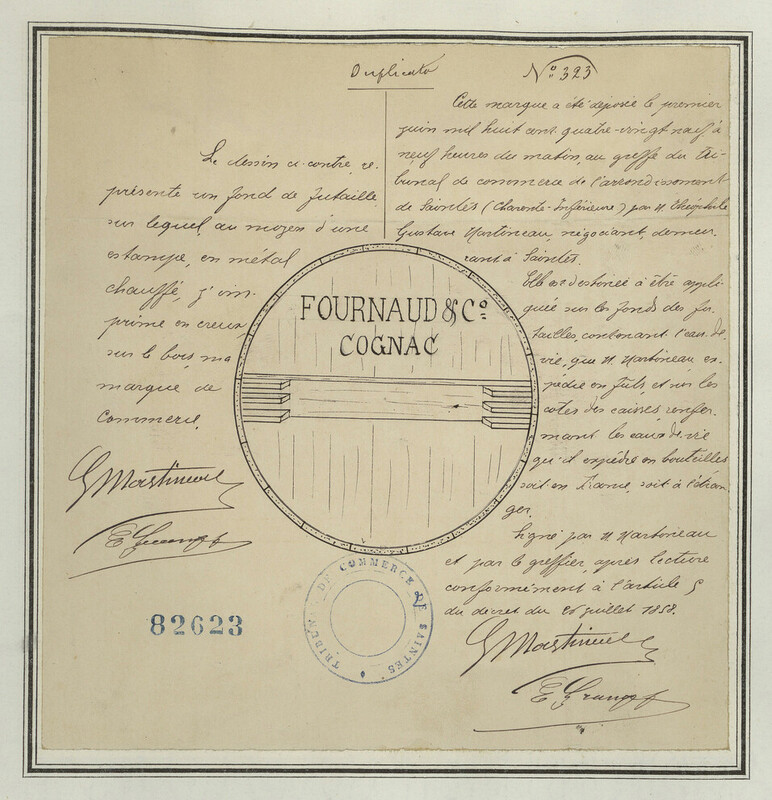 Duplicata
Nº 323
Le dessin ci-contre, re-
présente un fond de futaille
sur lequel au moyen d'une
estampe, en métal
chauffé, j'im-
prime en creux,
sur le bois, ma
marque de
Commerce.
G Martineau
82623
Cette marque a été déposée le premier
juin mil huit cent quatre-vingt neuf, à
neuf heures du matin, au greffe du Tri-
bunal de commerce de l'arrondissement
de Saintes (Charente-Inférieure) par M. Théophile
Gustave Martineau, négociant, demeu-
rant à Saintes.
Elle est destinée à être appli-
quée sur les fonds des fu-
tailles, contenant l'eau-de-
vie, que M. Martineau ex-
pédie en fûts, et sur les
cotés des caisses renfer-
mant les eaux-de-vie
qu'il expédie en bouteilles
soit en France, soit à l'étran-
ger.
Signé par M. Martineau
et par le greffier, après lecture
conformément à l'article 5
du décret du 26 juillet 1858.
G Martineau
FOURNAUD & Cº
COGNAC
TRIBUNAL DE COMMERCE DE SAINTES